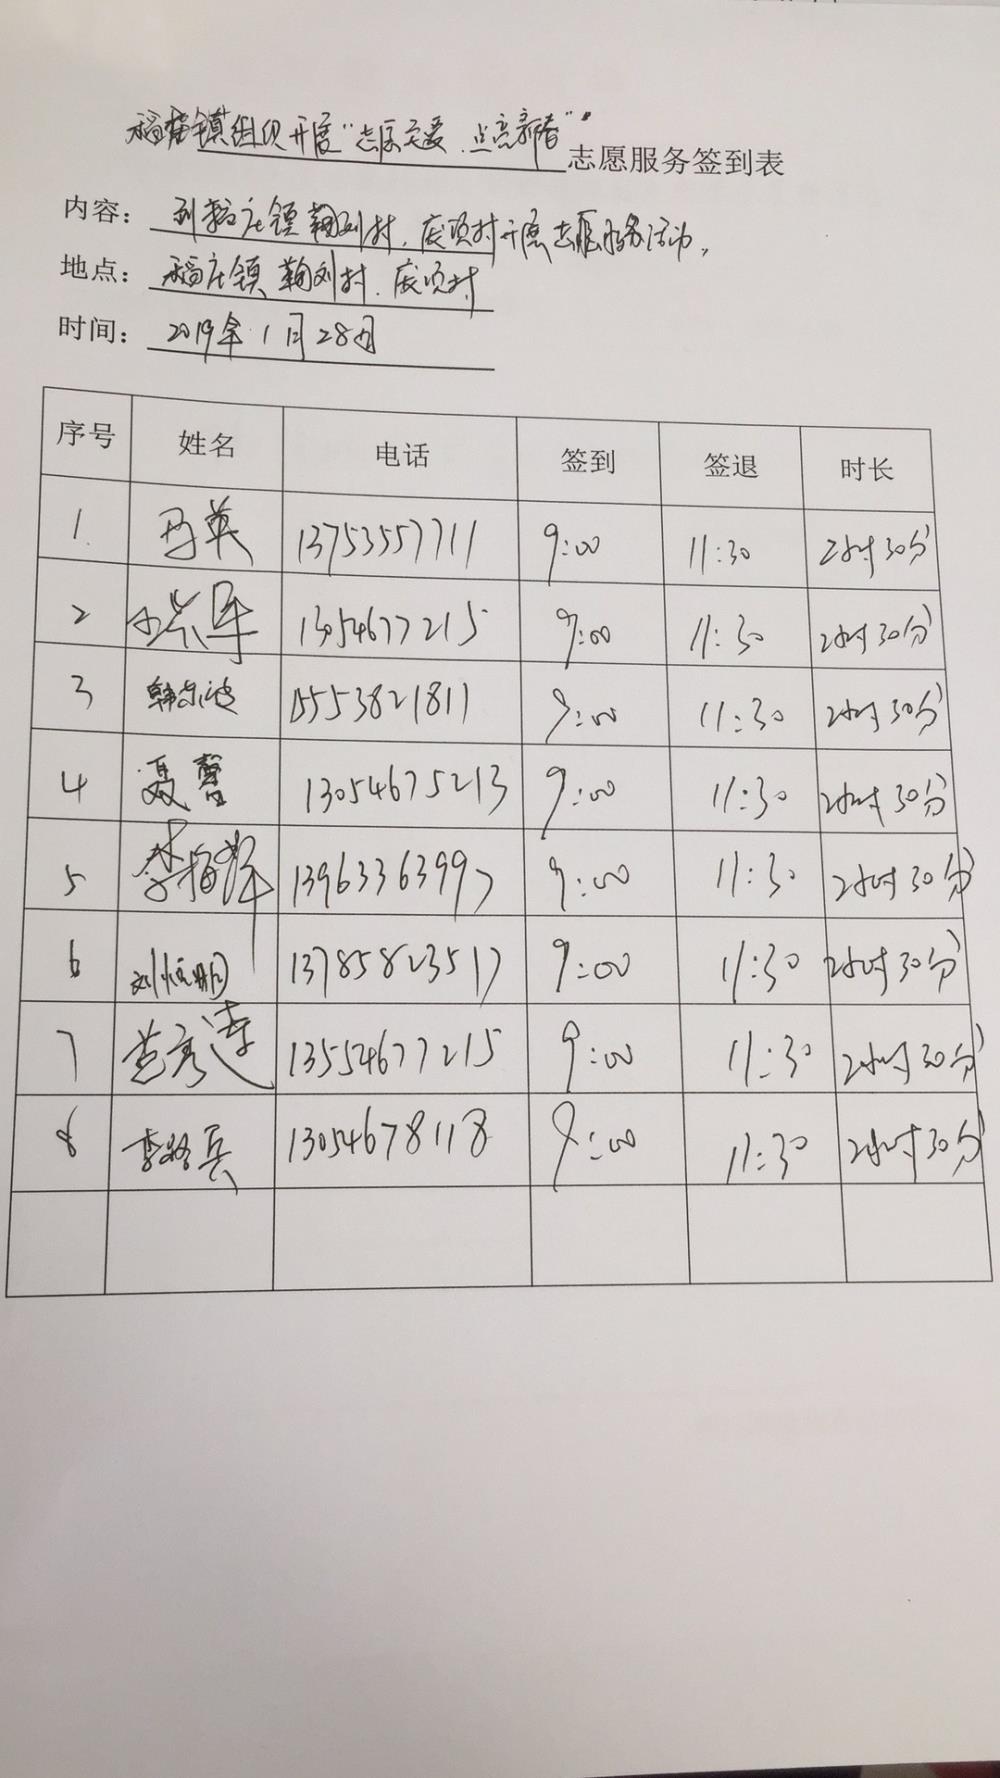 稻庄镇组织开展“志愿关爱、点亮新春”志愿服务签到表
内容: 到稻庄镇鞠刘村、庞项村开展志愿服务活动。
地点: 稻庄镇鞠刘村、庞项村
时间: 2019年1月28日
序号 姓名 电话 签到 签退 时长
1. 英 13753557711 9:00 11:30 2小时30分
2 军 13054677215 9:00 11:30 2小时30分
3 韩 15553821811 9:00 11:30 2小时30分
4 聂营 13054675213 9:00 11:30 2小时30分
5 李梅 13963363997 9:00 11:30 2小时30分
6 刘恒明 13785823517 9:00 11:30 2小时30分
7 莲 13554677215 9:00 11:30 2小时30分
8 李路兵 13054678118 9:00 11:30 2小时30分